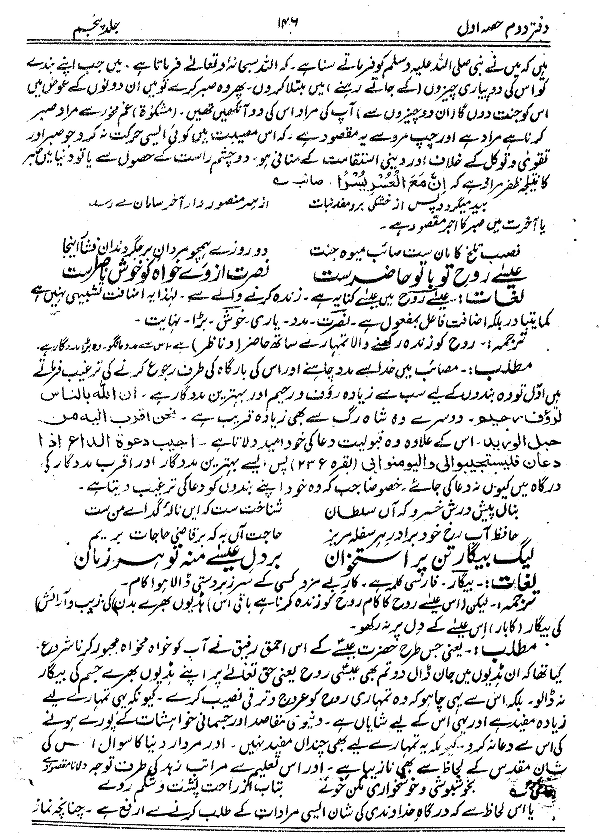 دفتر دوم حصہ اول ۱۴۶ جلد پنجم
ہیں کہ میں نے نبی صلی اللہ علیہ وسلم کو فرماتے سنا ہے۔ کہ اللہ سبحانہ وتعالےٰ فرماتا ہے۔ میں جب اپنے بندے
کو اس کی دو پیاری چیزوں (کے جاتے رہنے) میں مبتلا کروں۔ پھر وہ صبر کرے تو میں ان دونوں کے عوض میں
اس کو جنت دوں گا (ان دو چیزوں سے) آپ کی مراد اس کی دو آنکھیں تھیں۔ (مشکوٰۃ) غم خور سے مراد صبر
کرنا ہے مراد ہے اور چپ مرو سے یہ مقصود ہے۔ کہ اس مصیبت میں کوئی ایسی حرکت نہ کرو جو صبر اور
تقویٰ و توکل کے خلاف اور دینی استقامت کے منافی ہو۔ دو چشم راست کے حصول سے یا تو دنیا میں صبر
کا نتیجہ ظفر مراد ہے کہ اِنَّ مَعَ الْعُسْرِ یُسْرًا۔ صائب ؎
بید میگردد پس از خشکی برومند نبات از صبر منصور دار آخر سامان سے رسد
یا آخرت میں صبر کا اجر مقصود ہے۔
نصیب تلخ کامان ست صائب میوہ جنت دو روزے ہمچو مردان بر جگر دندان فشار اینجا
عیسےٰ روح تو با تو حاضر ست نصرت از وے خواہ کو خوش ناصر ست
لغات:۔ عیسےٰ روح میں عیسےٰ کنایہ ہے۔ زندہ کرنے والے سے۔ لہٰذا یہ اضافت تشبیہی نہیں ہے
کما یتبادر بلکہ اضافت فاعل بمفعول ہے۔ نصرت۔ مدد۔ یاری۔ خوش۔ بڑا۔ نہایت۔
ترجمہ:۔ روح کو زندہ رکھنے والا تمہارے ساتھ حاضر (و ناظر) ہے۔ اس سے مدد مانگو۔ وہ بڑا مددگار ہے۔
مطلب:۔ مصائب میں خدا سے مدد چاہنے اور اس کی بارگاہ کی طرف رجوع کرنے کی ترغیب فرماتے
ہیں اول تو وہ بندوں کے لیے سب سے زیادہ رؤف و رحیم اور بہترین مددگار ہے۔ ان اللہ بالناس
لرؤف رحیم۔ دوسرے وہ شاہ رگ سے بھی زیادہ قریب ہے۔ نحن اقرب الیہ من
حبل الورید۔ اس کے علاوہ وہ قبولیت دعا کی خود امید دلاتا ہے۔ اجیب دعوۃ الداع اذا
دعان فلیستجیبوالی والیومنوابی (البقرہ ۲۳۶) پس ایسے بہترین مددگار اور اقرب مددگار کی
درگاہ میں کیوں نہ دعا کی جائے۔ خصوصاً جب کہ وہ خود اپنے بندوں کو دعا کی ترغیب دیتا ہے۔
بنال پیش درش خسرو کہ آں سلطان شناخت ست کہ ایں نالۂ گدائے من ست
حافظ آب رخ خود بر در ہر سفلہ مریز حاجت آں بہ کہ بر قاضی حاجات بریم
لیک بیگار تن پر استخوان بر دل عیسےٰ منہ تو ہر زمان
لغات:۔ بیگار۔ فارسی کلمہ ہے۔ کار بے مزد کسی کے سر زبردستی ڈالا ہوا کام۔
ترجمہ:۔ لیکن (اس عیسےٰ روح کا کام روح کو زندہ کرنا ہے باقی اس) ہڈیوں بھرے بدن (کی زیب و آرائش)
کی بیگار (کا بار) اس عیسےٰ کے دل پر نہ رکھو۔
مطلب:۔ یعنی جس طرح حضرت عیسےٰ کے اس احمق رفیق نے آپ کو خواہ مخواہ مجبور کرنا شروع
کیا تھا کہ ان ہڈیوں میں جان ڈال دو تم بھی عیسیٰ روح یعنی حق تعالیٰ پر اپنے ہڈیوں بھرے جسم کی بیگار
نہ ڈالو۔ بلکہ اس سے یہی چاہو کہ وہ تمہاری روح کو عروج و ترقی نصیب کرے۔ کیونکہ یہی تمہارے لیے
زیادہ مفید ہے اور یہی اس کے لیے شایاں ہے۔ دنیوی مقاصد اور جسمانی خواہشات کے پورے ہونے
کی اس سے دعا نہ کرو۔ کیونکہ یہ تمہارے لیے بھی چنداں مفید نہیں۔ اور مردار دنیا کا سوال اس کی
شان مقدس کے لحاظ سے بھی نازیبا ہے۔ اور اس تعلیم سے مراتب زہد کی طرف توجہ دلانا مقصود ہے
بخوشپوشی و خوشخواری مکن خوئے بتاب از راحت پشت و شکم روے
یا اس لحاظ سے کہ درگاہ خداوندی کی شان ایسی مرادات کے طلب کرنے سے ارفع ہے۔ چنانچہ نماز